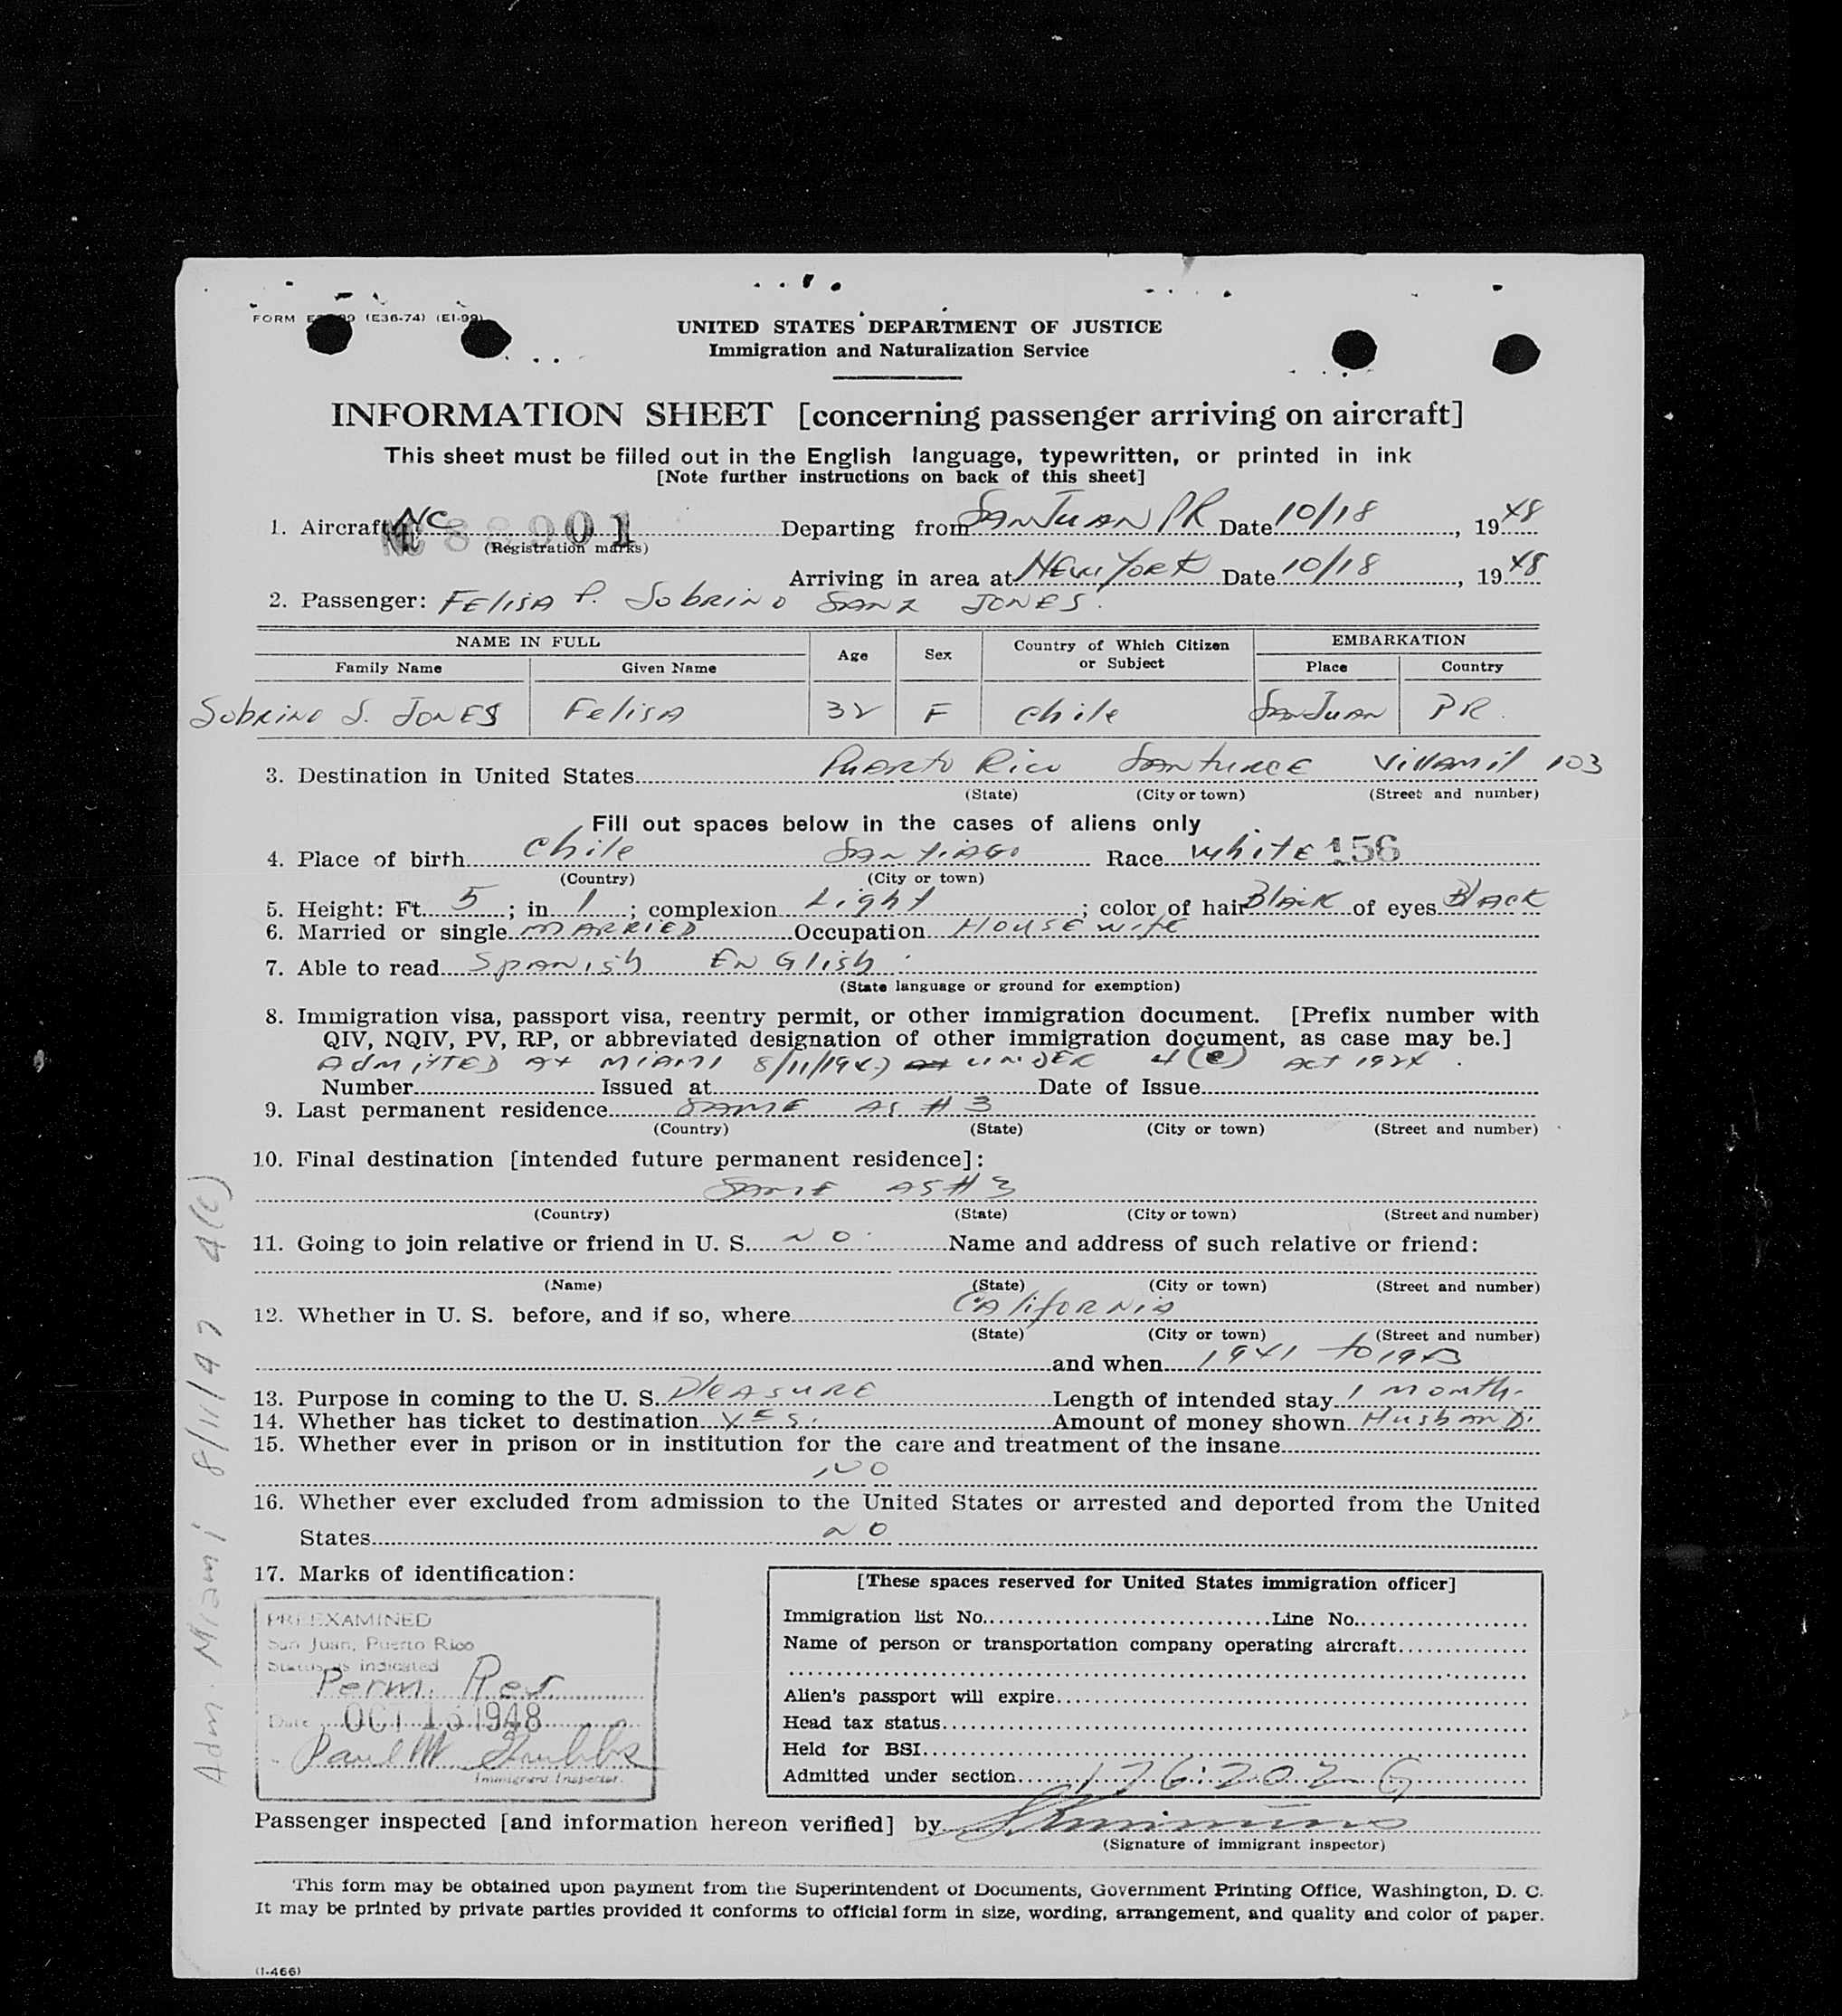 FORM (E36-74) (EI-99)
UNITED STATES DEPARTMENT OF JUSTICE
Immigration and Naturalization Service
INFORMATION SHEET [concerning passenger arriving on aircraft]
This sheet must be filled out in the English language, typewritten, or printed in ink
[Note further instructions on back of this sheet]
1. Aircraft NC 88901 Departing from SAN JUAN PR Date 10/18, 1948
(Registration marks)
Arriving in area at NEW YORK Date 10/18, 1948
2. Passenger: FELISA P. SobRINO SANZ JONES.
NAME IN FULL Age Sex Country of Which Citizen or Subject EMBARKATION
Family Name Given Name Place Country
SObRINO S. JONES FeLISA 32 F Chile SAN JUAN PR.
3. Destination in United States PuERto Rico SANTURCE VillAmil 103
(State) (City or town) (Street and number)
Fill out spaces below in the cases of aliens only
4. Place of birth Chile SANTIAGO Race WhITE 156
(Country) (City or town)
5. Height: Ft. 5; in 1; complexion Light; color of hair BlAcK of eyes BlACK
6. Married or single MARRIED Occupation HOUSE wife
7. Able to read SPANISh ENGlish
(State language or ground for exemption)
8. Immigration visa, passport visa, reentry permit, or other immigration document. [Prefix number with
QIV, NQIV, PV, RP, or abbreviated designation of other immigration document, as case may be.]
AdmITTED At MIAMI 8/11/1947 UNDER 4(e) Act 1924.
Number Issued at Date of Issue
9. Last permanent residence SAME AS #3
(Country) (State) (City or town) (Street and number)
10. Final destination [intended future permanent residece]:
SAME AS #3
(Country) (State) (City or town) (Street and number)
11. Going to join relative or friend in U. S. NO. Name and address of such relative or friend:
(Name) (State) (City or town) (Street and number)
12. Whether in U. S. before, and if so, where CAlifORNIA
(State) (City or town) (Street and number)
and when 1941 to 1943
13. Purpose in coming to the U. S. PleASURE Length of intended stay 1 month.
14. Whether has ticket to destination YES. Amount of money shown HusbanD.
15. Whether ever in prison or in institution for the care and treatment of the insane
NO
16. Whether ever excluded from admission to the United States or arrested and deported from the United
States NO
17. Marks of identification:
PREEXAMINED
San Juan, Puerto Rico
Status as indicated
Perm. Res
Date OCT 1948
Paul M Stubbs
Immigrant Inspector.
[These spaces reserved for United States immigration officer]
Immigration list No. Line No.
Name of person or transportation company operating aircraft
Alien's passport will expire
Head tax status
Held for BSI
Admitted under section 176.202 G
Passenger inspected [and information hereon verified] by
(Signature of immigrant inspector)
This form may be obtained upon payment from the Superintendent of Documents, Government Printing Office, Washington, D. C.
It may be printed by private parties provided it conforms to official form in size, wording, arrangement, and quality and color of paper.
(I-466)
Adm. Miami 8/11/47 4(e)